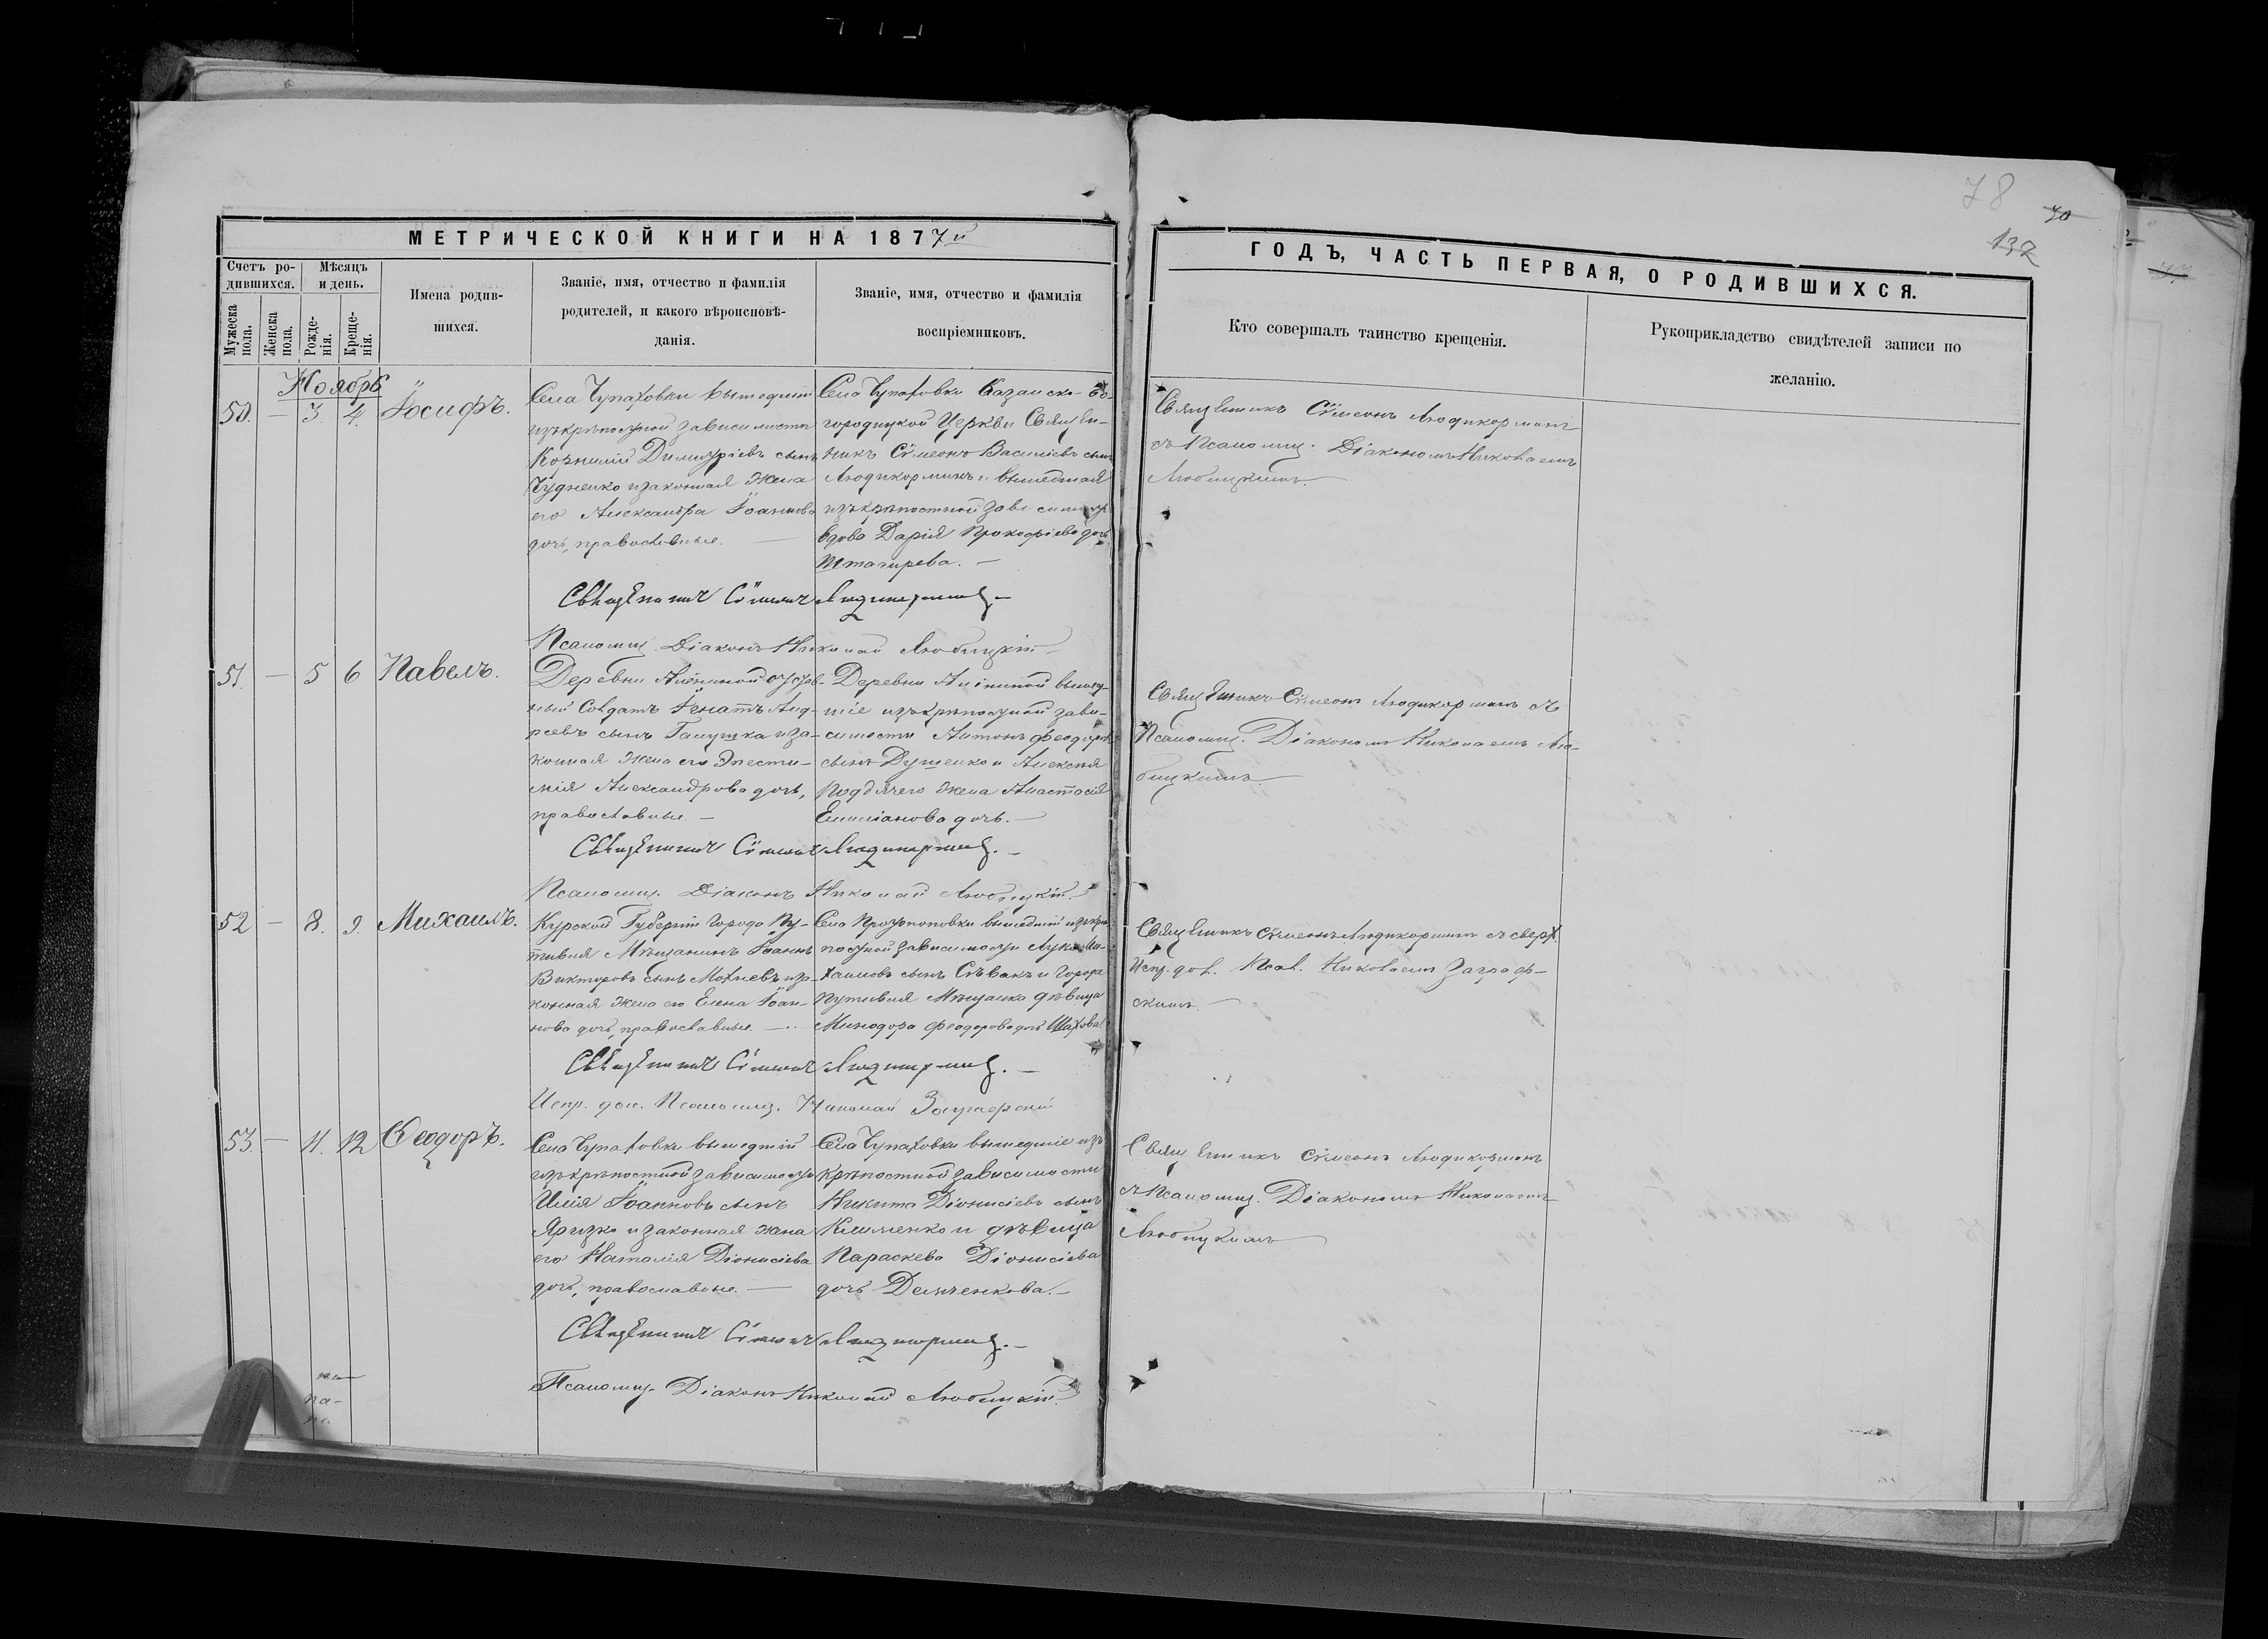 78
70
132
МЕТРИЧЕСКОЙ КНИГИ НА 1877й
Счетъ ро-
дившихся.
Мѣсяцъ
и день.
Мужеска
пола.
Женска
пола.
Рожде-
нія.
Креще-
нія.
Имена родив-
шихся.
Званіе, имя, отчество и фамилія
родителей, и какого вѣроисповѣ-
данія.
Званіе, имя, отчество и фамилія
воспріемниковъ.
ГОДЪ, ЧАСТЬ ПЕРВАЯ, О РОДИВШИХСЯ.
Кто совершалъ таинство крещенія.
Рукоприкладство свидѣтелей записи по
желанію.
Ноябрь
50. — 3. 4. Іосифъ.
Села Чупаховки вышедшій
изъ крѣпостной зависимости
Корнилій Димитріевъ сынъ
Чудненко и законная жена
его Александра Іоаннова
дочь, православные. —
Села Чупаховки Казанско-Бо-
городицкой Церкви Священ-
никъ Сѵмеонъ Василіевъ сынъ
Людикорминъ и вышедшая
изъ крѣпостной зависимости
вдова Дарія Прокофіева дочь
Священникъ Сѵмеонъ Людикорминъ
съ Псаломщ. Діакономъ Николаемъ
Любицкимъ.
Священникъ Сѵмеонъ Людикорминъ. —
Псаломщ. Діаконъ Николай Любицкій
51. — 5 6 Павелъ.
Деревни Алениной отстав-
ный Солдатъ Игнатъ Анд-
реевъ сынъ Галушка и за-
конная жена его Эпести-
мія Александрова дочь,
православные. —
Деревни Алениной вышед-
шіе изъ крѣпостной зави-
симости Антонъ Феодоровъ
сынъ Дутенко и Алексѣя
Поддячего жена Анастасія
Емиліанова дочь. —
Священникъ Сѵмеонъ Людикорминъ съ
Псаломщ. Діакономъ Николаемъ Лю-
бицкимъ
Священникъ Сѵмеонъ Людикорминъ. —
Псаломщ. Діаконъ Николай Любицкій.
52 — 8. 9. Михаилъ.
Курской Губерніи города Пу-
тивля Мѣщанинъ Іоаннъ
Викторовъ сынъ Мохневъ и за-
конная жена его Елена Іоан-
нова дочь, православные. —
Села вышедшій изъ крѣ-
постной зависимости Лука Ми-
хаиловъ сынъ Сѣвакъ и города
Путивля Мѣщанка дѣвица
Минодора Феодорова дочь Шахова.
Священникъ Сѵмеонъ Людикорминъ съ сверх.
Испр. дол. Псал. Николаемъ Заграф-
скимъ —
Священникъ Сѵмеонъ Людикорминъ. —
Испр. дол. Псаломщ. Николай Заграфскій
53. — 11. 12 Ѳеодоръ.
Села Чупаховки вышедшій
изъ крѣпостной зависимости
Илія Іоанновъ сынъ
Яризко и законная жена
его Наталія Діонисіева
дочь, православные. —
Села Чупаховки вышедшіе изъ
крѣпостной зависимости
Никита Діонисіевъ сынъ
Клименко и дѣвица
Параскева Діонисіева
дочь Демченкова. —
Священникъ Сѵмеонъ Людикорминъ
съ Псаломщ. Діакономъ Николаемъ
Любицкимъ
Священникъ Сѵмеонъ Людикорминъ. —
Псаломщ. Діаконъ Николай Любицкій.